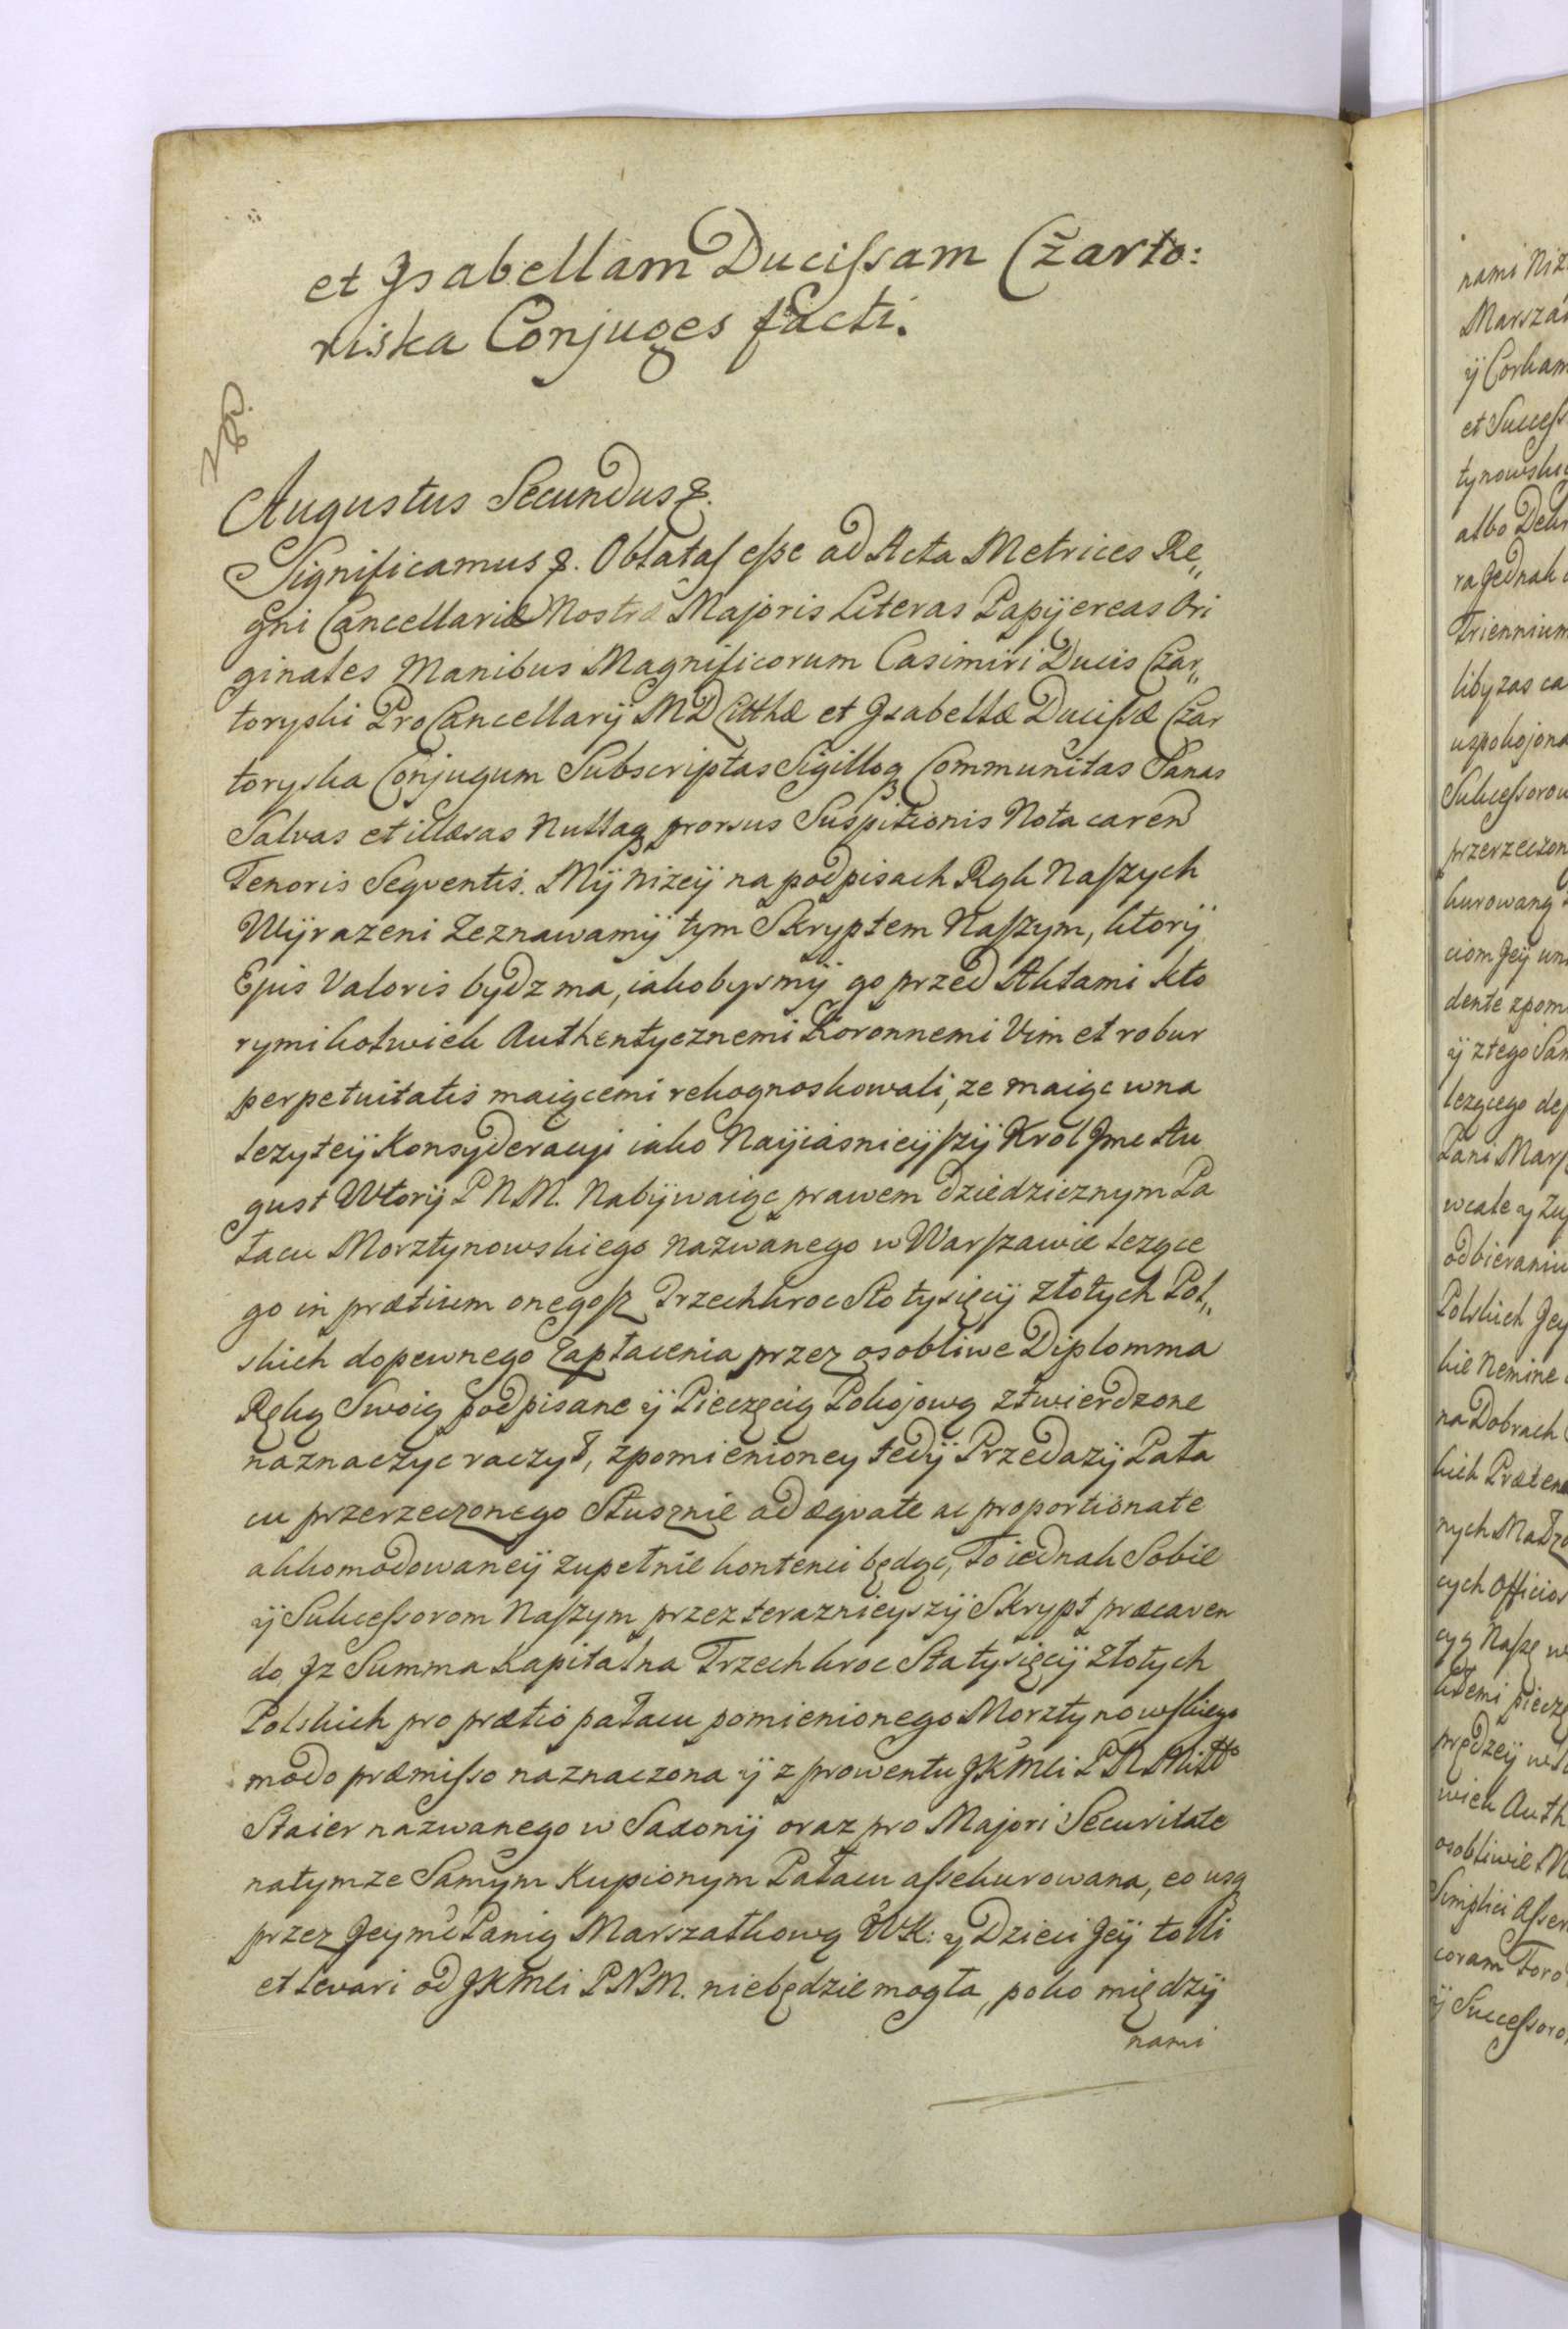 et Jsabellam Ducißam Czarto:
riska Conjuges facti.
Augustus Secundus &.
Significamus &. Oblatas eße ad Acta Metrices Re„
gni Cancellariæ Nostræ Majoris Literas Papÿereas Ori
ginales Manibus Magnificorum Casimiri Ducis Czar„
toryski ProCancellarÿ MDLitthæ et Jsabellæ Ducißæ Czar
toryska Conjugum Subscriptas Sigilloq Communitas Sanas
Salvas et illæsas Nullaq prorsus Suspitionis Nota caren
Tenoris Seqventis. Mÿ nizeÿ na podpisach Rąk Naszych
Wÿrazeni Zeznawamÿ tym Skryptem Naszym, ktorÿ
Ejus Valoris bydz ma, iakobysmÿ go przed Aktami kto
rymikolwiek Authentycznemi Koronnemi Vim et robur
perpetuitatis maiącemi rekognoskowali, ze maiąc w na
lezyteÿ Konsyderacyi iako Nayiasnieÿszÿ Krol Jmc Au
gust Wtorÿ P N M. Nabÿwaiąc prawem dziedzicznym Pa
łacu Morztynowskiego nazwanego w Warszawie lezące
go in prætium onegosz Trzechkroc Sto tysięcÿ złotych Pol„
skich dopewnego zapłacenia przez osobliwe Diplomma
Ręką Swoią podpisane ÿ Pieczęcią Pokojową ztwierdzone
naznaczyc raczył, zpomienioney tedÿ Przedazÿ Pała
cu przerzeczonego Słusznie adæqvate ac proportionate
akkomodowaneÿ zupełnie kontenci będąc, To iednak Sobie
ÿ Sukceßorom Naszym przez teraznieyszÿ Skrypt præcaven
do, Jz Summa Kapitalna Trzechkroc Sta tysięcÿ złotych
Polskich pro prætio pałacu pomienionego Morztynowskiego
modo præmißo naznaczona ÿ z prowentu JKMci P N Mił
Staier nazwanego w Saxonÿ oraz pro Majori Securitate
natymze Samym Kupionym Pałacu aßekurowana, eo usq
przez Jeymc Panią Marszałkową WK: y Dzieci Jeÿ tolli
et levari od JKMci P N M. niebędzie mogła, poko międzÿ
nami